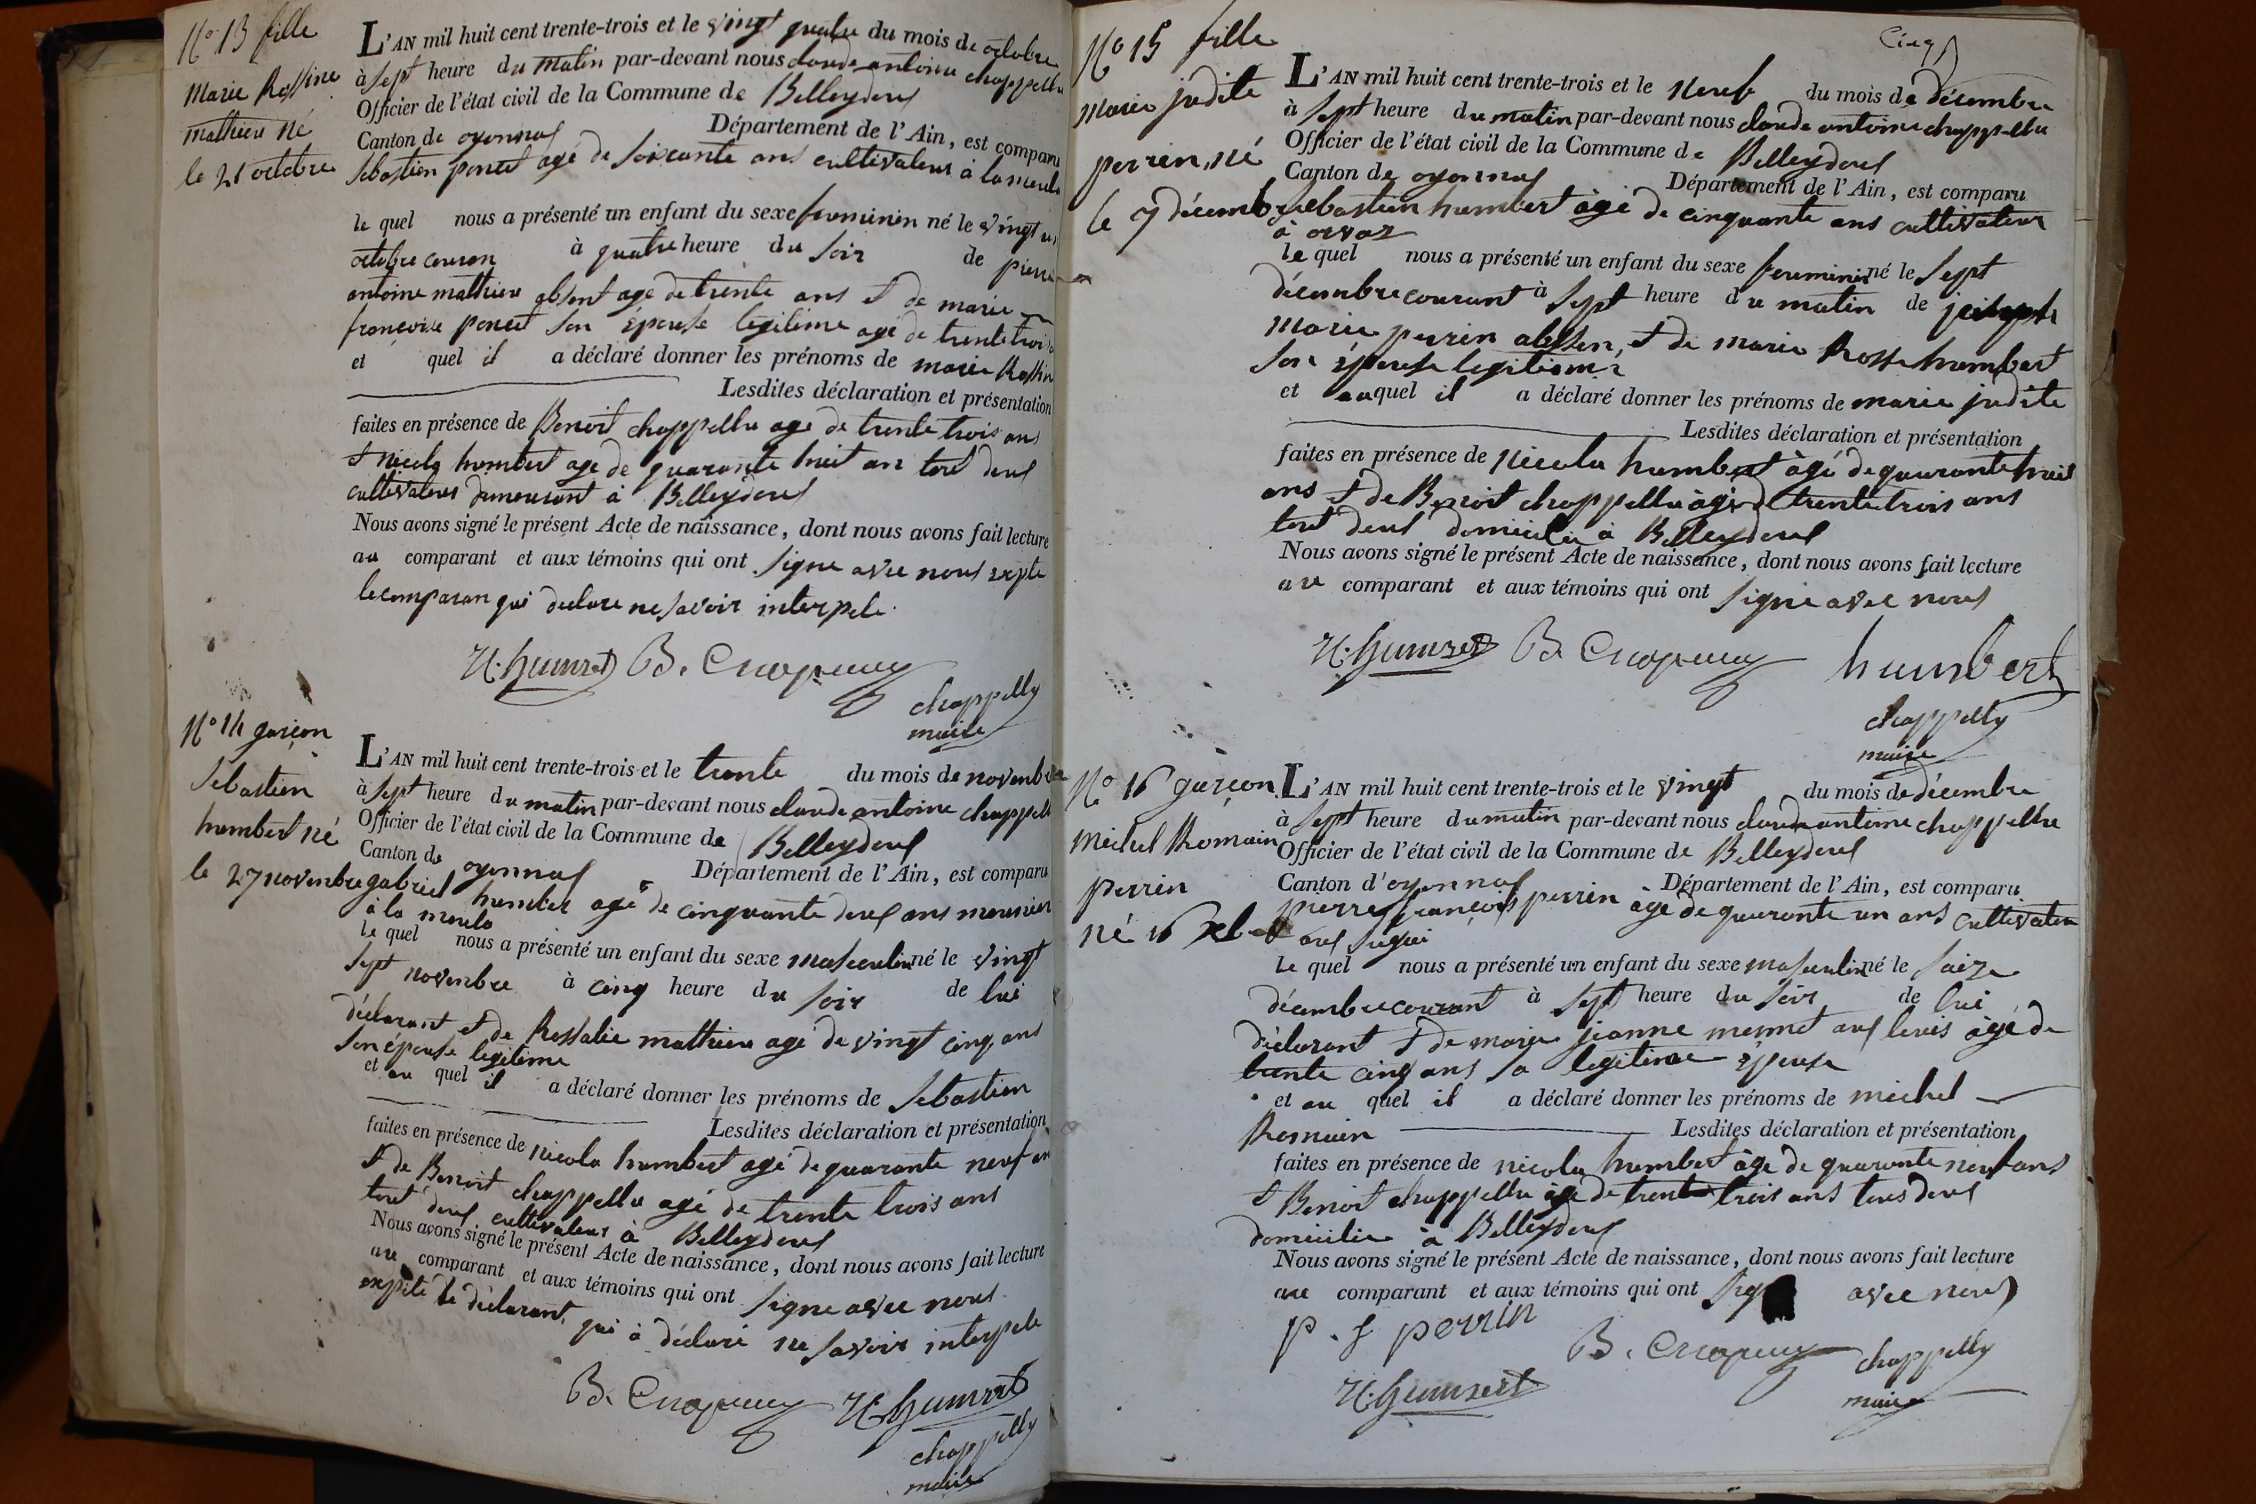 N.o 13 fille
Marie Rossine
mathieu né
le 21 octobre
L'AN mil huit cent trente-trois et le vingt quatre du mois de octobre
à sept heure du matin par-devant nous claude antoine chappellu
Officier de l'état civil de la Commune de Belleydoux
Canton de oyonnax Département de l'Ain, est comparu
Sebastien poncet agé de soixante ans cultivateur à la
le quel nous a présenté un enfant du sexe feuminin né le vingt un
octobre couran à quatre heure du soir de pierre
antoine mathieu absent agé de trente ans et de marie
françoise poncet son épouse legitime agé de trente trois
et quel il a déclaré donner les prénoms de marie Rossine
Lesdites déclaration et présentation
faites en présence de Benoit chappellu agé de trente trois ans
et nicola humbert agé de quarante huit an tout deux
cultivateur demeurant à Belleydoux
Nous avons signé le présent Acte de naissance, dont nous avons fait lecture
au comparant et aux témoins qui ont signe avec nous
le comparan qui declare ne savoir interpele.
N. humbert B. Chapelluy
chappelly
maire
N.o 14 garçon
Sebastien
humbert né
le 27 novembre
L'AN mil huit cent trente-trois et le trente du mois de novembre
à sept heure du matin par-devant nous claude antoine chappellu
Officier de l'état civil de la Commune de Belleydoux
Canton de oyonnax Département de l'Ain, est comparu
gabriel humbert agé de cinquante deux ans meunier
à la
le quel nous a présenté un enfant du sexe masculin né le vingt
sept novembre à cinq heure du soir de lui
déclarant et de Rossalie mathieu agé de vingt cinq ans
son épouse legitime
et au quel il a déclaré donner les prénoms de Sebastien
Lesdites déclaration et présentation
faites en présence de nicola humbert agé de quarante neuf an
et de Benoit chappellu agé de trente trois ans
tout deux cultivateur à Belleydoux
Nous avons signé le présent Acte de naissance, dont nous avons fait lecture
au comparant et aux témoins qui ont signe avec nous
le déclarant, qui à déclaré ne savoir interpele
B. Chapelluy N. humbert
chappelly
maire
Cinq
N.o 15 fille
marie judite
perrin, né
le 7 décembre
L'AN mil huit cent trente-trois et le neuf du mois de décembre
à sept heure du matin par-devant nous claude antoine chappellu
Officier de l'état civil de la Commune de Belleydoux
Canton de oyonnax Département de l'Ain, est comparu
Sebastien humbert àgé de cinquante ans cultivateur
à orvaz
le quel nous a présenté un enfant du sexe feuminin né le sept
décembre courant à sept heure du matin de
marie perrin absen, et de marie Rosse humbert
son épouse legitime
et auquel il a déclaré donner les prénoms de marie judite
Lesdites déclaration et présentation
faites en présence de nicola humbert àgé de quarante huit
ans et de Benoit chappellu àgé de trente trois ans
tout deux domicilie à Belleydoux
Nous avons signé le présent Acte de naissance, dont nous avons fait lecture
au comparant et aux témoins qui ont signe avec nous
N. humbert B. Chapelluy humbert
chappelly
maire
N.o 16 garçon
Michel Romain
perrin
né 16 Xbre
L'AN mil huit cent trente-trois et le vingt du mois de décembre
à sept heure du matin par-devant nous claude antoine chappellu
Officier de l'état civil de la Commune de Belleydoux
Canton d'oyonnax Département de l'Ain, est comparu
pierre françois perrin àgé de quarante un ans cultivateur
aux
le quel nous a présenté un enfant du sexe masculin né le saize
décembre courant à sept heure du soir de lui
déclarant et de marie jeanne mermet àgé de
trente cinq ans sa legitime épouse
et au quel il a déclaré donner les prénoms de michel
Romain Lesdites déclaration et présentation
faites en présence de nicola humbert àgé de quarante neuf ans
et Benoit chappellu àgé de trente trois ans tous deux
domicilie à Belleydoux
Nous avons signé le présent Acte de naissance, dont nous avons fait lecture
au comparant et aux témoins qui ont avec nous
p. f perrin
B. Chapelluy chappelly
N. humbert maire